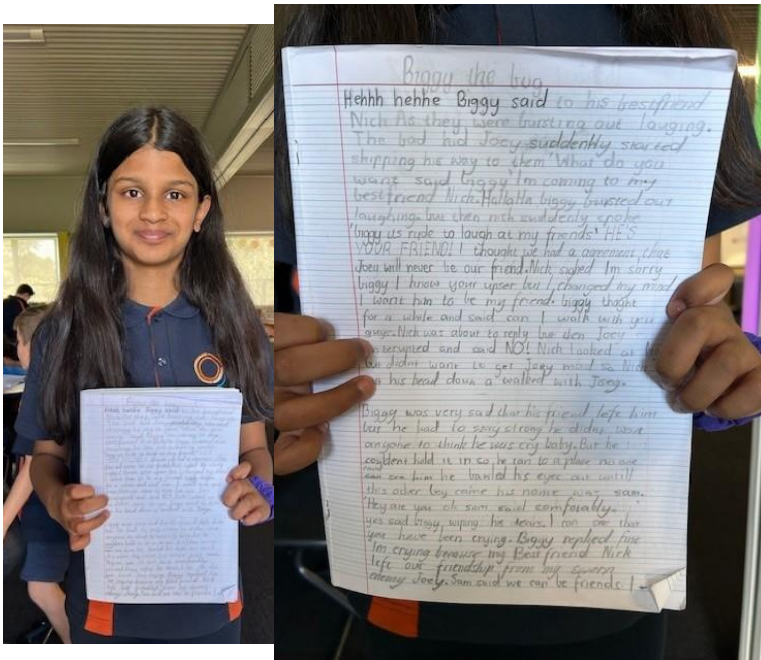 Biggy the bug
Hehhh hehhe Biggy said to his bestfriend
Nich As they were bursting out lauging.
The bad kid Joey suddently started
shipping his way to them 'What do you
want said biggy' Im coming to my
bestfriend Nich. HaHaHa biggy bursted out
laughing. but then nick suddenly spoke
'biggy its rude to laugh at my friends' HE'S
YOUR FRIEND! I thought we had a agreement that
Joey will never be our friend. Nick sighed Im sorry
biggy I know your upset but I changed my mind
I want him to be my friend. biggy thoght
for a while and said can I walk with you
guys. Nich was about to reply but then Joey
interrupted and said NO! Nich looked at
but didnt want to get Joey mad so Nich
his head down a walked with Joey.
Biggy was very sad that his friend left him
but he had to stay strong he didnt want
anyone to think he was cry baby. But he
couldent hold it in so he ran to a place no one
could see him he bawled his eyes out untill
this other boy came his name was sam.
'Hey are you ok sam said comfortably.
yes said biggy, wiping his tears. I can see that
you have been crying. Biggy replied fine
'Im crying because my Best friend Nick
left our friendship from my sworn
enemy Joey. Sam said we can be friends!